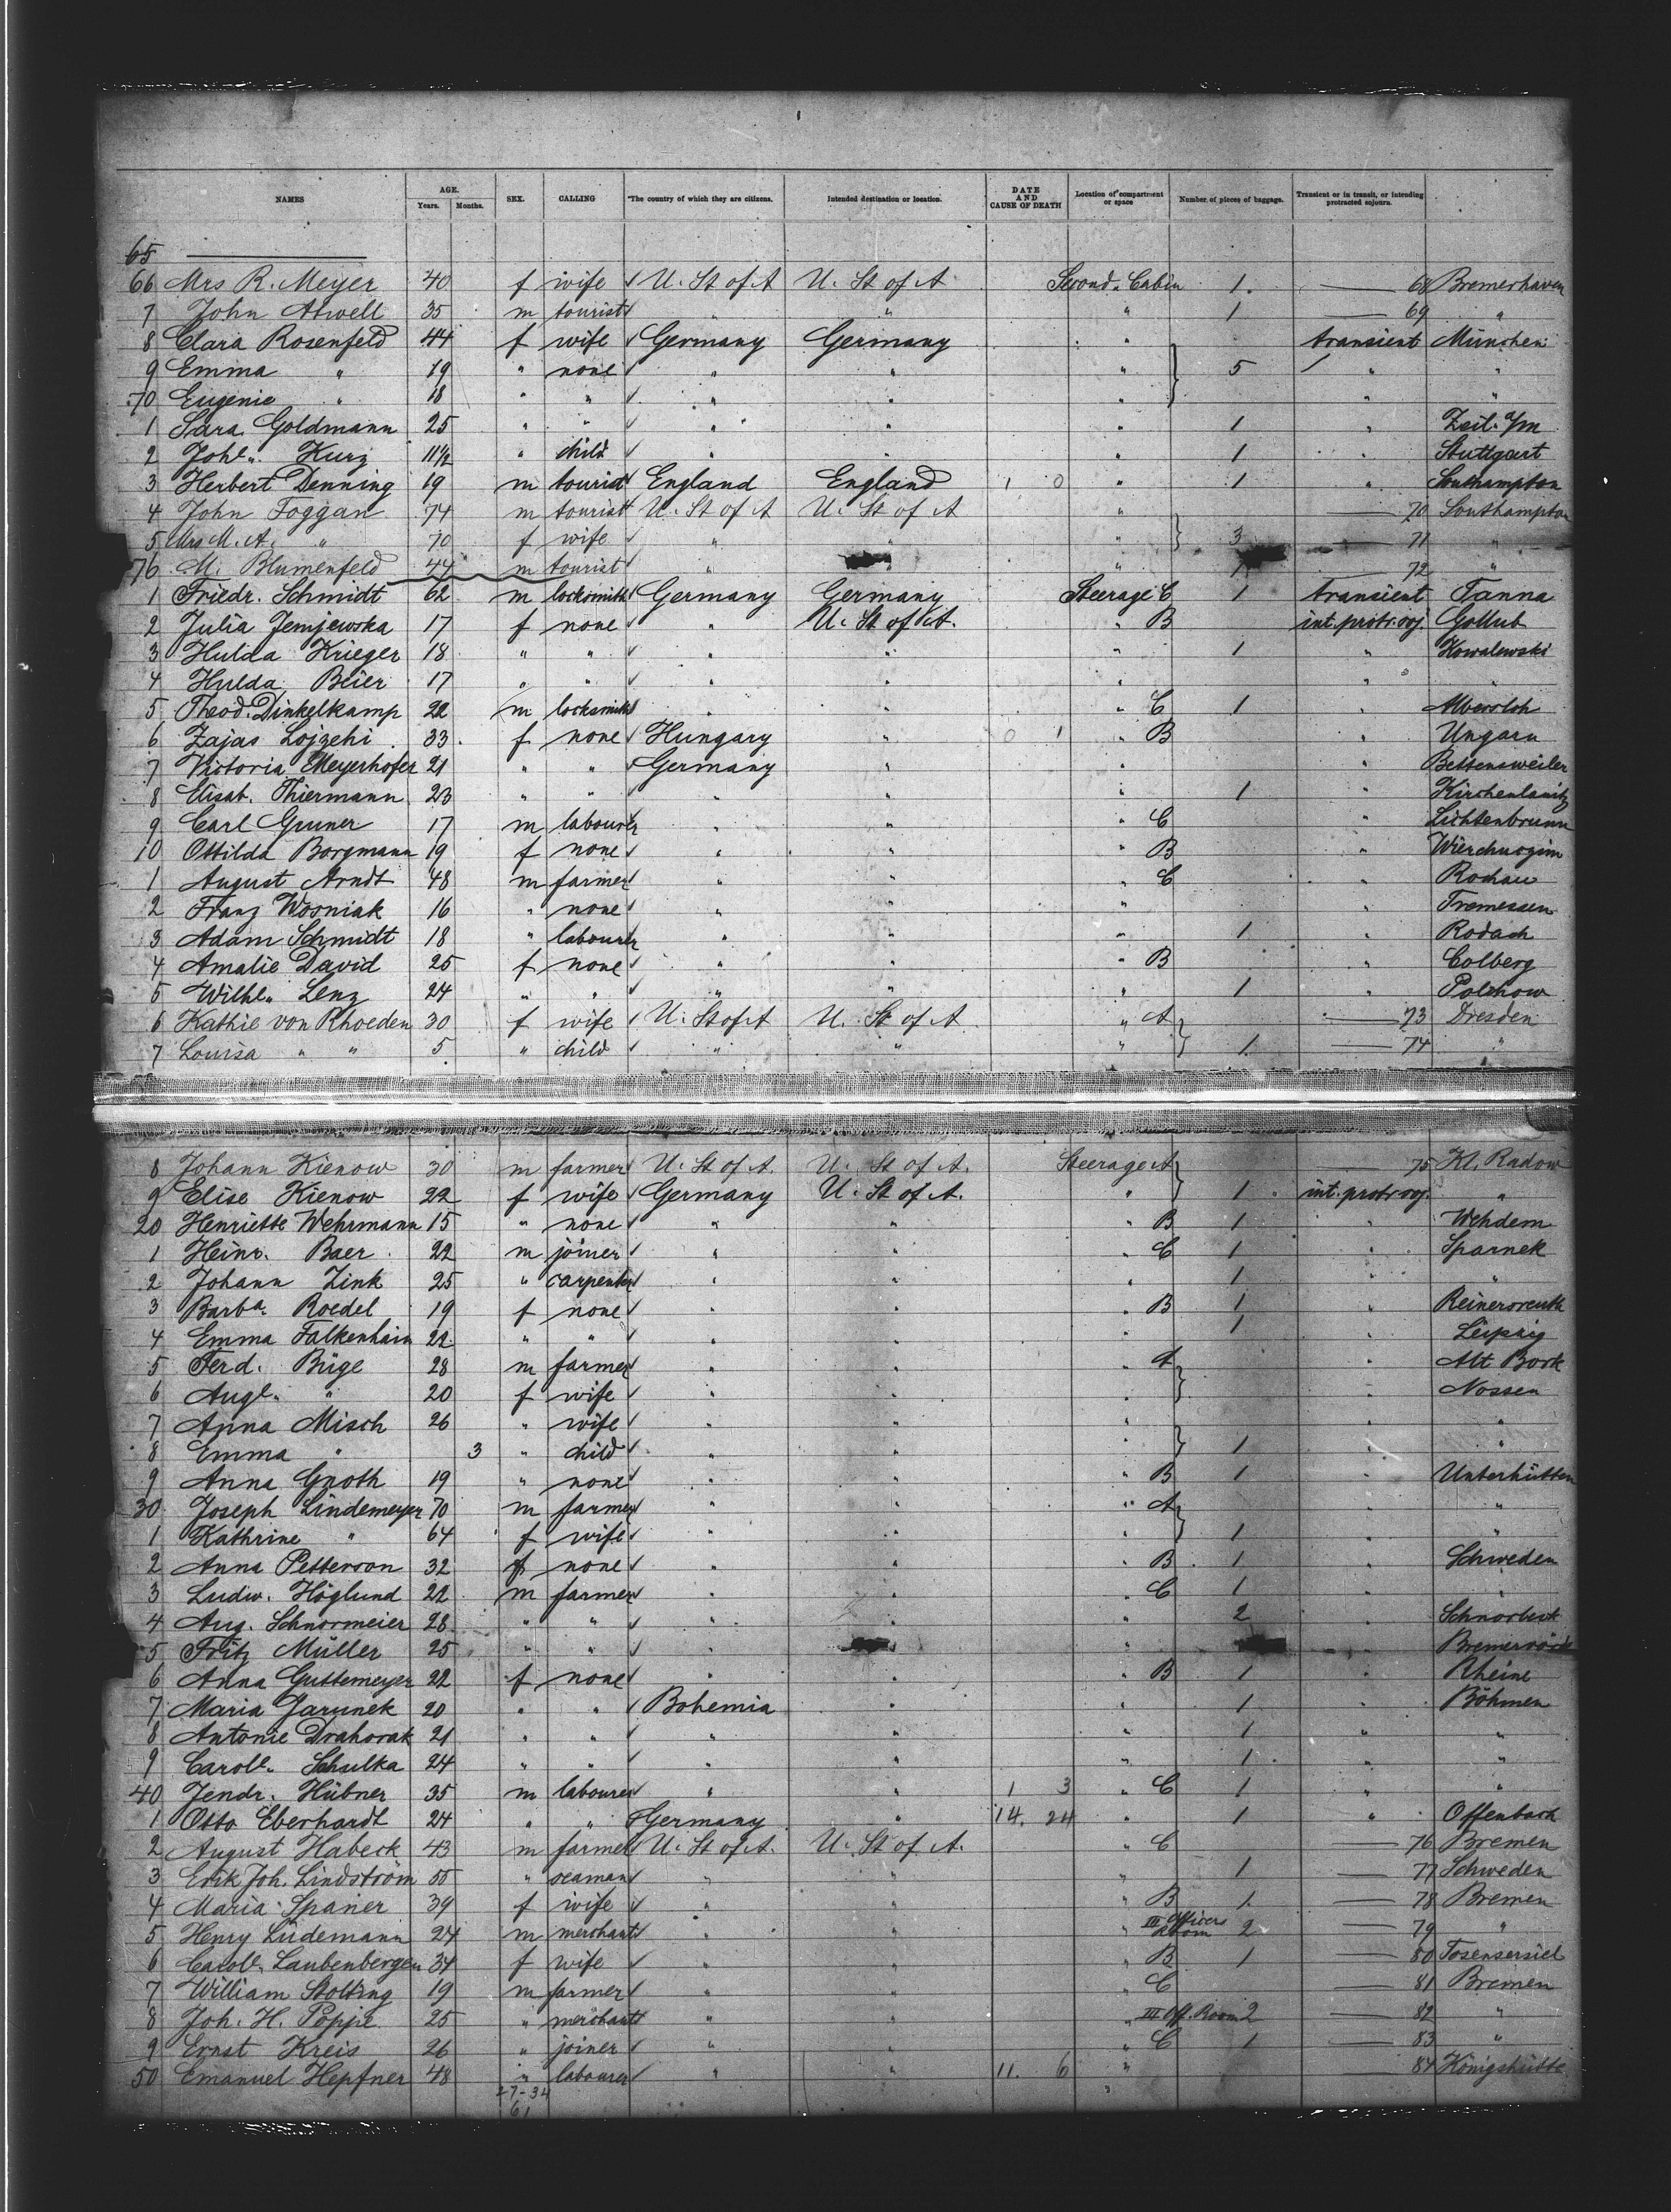 NAMES AGE. Years. Months. SEX. CALLING *The country of which they are citizens. Intended destination or location. DATE AND CAUSE OF DEATH Location of compartment or space Number of pieces of baggage. Transient or in transit, or intending protracted sojourn.
65
66 Mrs R. Meyer 40 f wife U. St of A U. St of A Second Cabin 1. 68 Bremerhaven
7 John Atwell 35 m tourist " " " 1 69 "
8 Clara Rosenfeld 44 f wife Germany Germany " transient München
9 Emma " 19 " none " " " 5 " "
70 Eugenie " 18 " " " " " " "
1 Sara Goldmann 25 " " " " " 1 " Zeil a/m
2 Johe. Kurz 11½ " child " " " 1 " Stuttgart
3 Herbert Denning 19 m tourist England England 1 0 " 1 " Southampton
4 John Foggan 74 m tourist U. St of A U. St of A " 70 Southampton
5 Mrs M. A. " 70 f wife " " " 3 71 "
76 M. Blumenfeld 44 m tourist " " 1 72 "
1 Friedr. Schmidt 62 m locksmith Germany Germany Steerage C 1 transient Tanna
2 Julia Jemjewska 17 f none " U. St of A. " B int. protr. soj. Gollub
3 Hulda Krieger 18 " " " " " 1 " Kowalewski
4 Hulda Beier 17 " " " " " " "
5 Theod. Dinkelkamp 22 m locksmith " " " C 1 " Albersloh
6 Zajas Lojzehi 33 f none Hungary " 0 1 " B " Ungarn
7 Victoria Meyerhofer 21 " " Germany " " " Bettensweiler
8 Elisab. Thiermann 23 " " " " " 1 " Kirchenlamitz
9 Carl Gruner 17 m labourer " " " C " Lichtenbrunn
10 Ottilda Borgmann 19 f none " " " B "
1 August Arndt 48 m farmer " " " C " Rochau
2 Franz Wosniak 16 " none " " " " Tremessen
3 Adam Schmidt 18 " labourer " " " 1 " Rodach
4 Amalie David 25 f none " " " B " Colberg
5 Wilhe. Lenz 24 " " " " " 1 " Polchow
6 Kathie von Rhoeden 30 f wife U. St of A U. St of A " A 73 Dresden
7 Louisa " " 5 " child " " " 1. 74 "
8 Johann Kienow 30 m farmer U. St of A. U. St of A. Steerage A 75 Kl. Radow
9 Elise Kienow 22 f wife Germany U. St of A. " 1 int. protr. soj. "
20 Henriette Wehrmann 15 " none " " " B 1 " Wehdem
1 Heinr. Baer 22 m joiner " " " C 1 " Sparnek
2 Johann Zink 25 " carpenter " " " 1 " "
3 Barba. Roedel 19 f none " " " B 1 " Reinersreuth
4 Emma Falkenhain 22 " " " " " 1 " Leipzig
5 Ferd. Büge 28 m farmer " " " A " Alt Bork
6 Auge. " 20 f wife " " " " Nossen
7 Anna Misch 26 " wife " " " " "
8 Emma " 3 " child " " " 1 " "
9 Anna Gnoth 19 " none " " " B 1 " Unterhütten
30 Joseph Lindemeyer 70 m farmer " " " A " "
1 Kathrine " 64 f wife " " " 1 " "
2 Anna Petterson 32 f none " " " B 1 " Schweden
3 Ludw. Höglund 22 m farmer " " " C 1 " "
4 Aug. Schnormeier 28 " " " " " 2 " Schnorbeck
5 Fritz Müller 25 " " " " " Bremervörde
6 Anna Guttemeyer 22 f none " " " B 1 " Rheine
7 Maria Jarunek 20 " " Bohemia " " 1 " Böhmen
8 Antonie Drahorak 21 " " " " " 1 " "
9 Carole. Schulka 24 " " " " " 1 " "
40 Jendr. Hübner 35 m labourer " " 1 3 " C 1 " "
1 Otto Eberhardt 24 " " Germany " 14. 24 " 1 " Offenbach
2 August Habeck 43 m farmer U. St of A. U. St of A. " C 76 Bremen
3 Erik Joh. Lindström 55 " seaman " " " 1 77 Schweden
4 Maria Spanier 39 f wife " " " B 1. 78 Bremen
5 Henry Lüdemann 24 m merchant " " " III Officers Room 2 79 "
6 Carole. Laubenberger 34 f wife " " " B 1 80 Tosensersiel
7 William Stolting 19 m farmer " " " C 81 Bremen
8 Joh. H. Poppe 25 " merchant " " " III Off. Room 2 82 "
9 Ernst Kreis 26 " joiner " " " C 1 83 "
50 Emanuel Hepfner 48 " labourer " " 11. 6 " 84 Königshütte
27-34 "
61